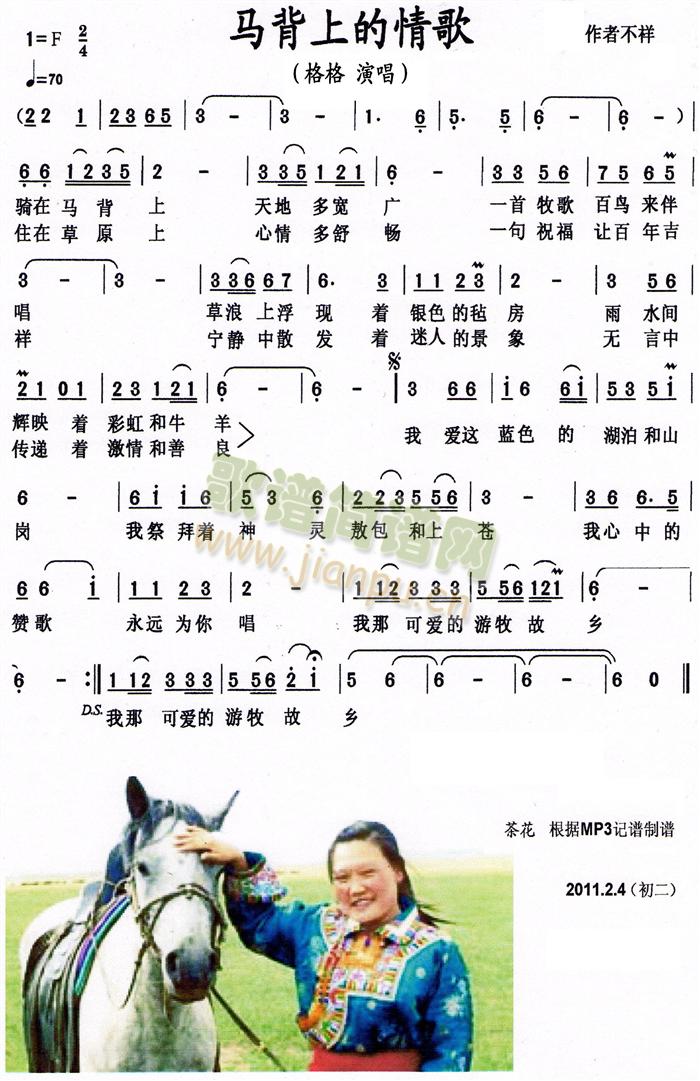 马背上的情歌
1=F 2/4
作者不祥
♩=70
（格格 演唱）
(2 2 1 | 2 3 6 5 | 3 - | 3 - | 1· 6 | 5· 5 | 6 - | 6 - ) |
6 6 1 2 3 5 | 2 - | 3 3 5 1 2 1 | 6 - | 3 3 5 6 | 7 5 6 5 |
骑在 马 背 上 天地 多宽 广 一首 牧歌 百鸟 来伴
住在 草 原 上 心情 多舒 畅 一句 祝福 让百 年吉
3 - | 3 - | 3 3 6 6 7 | 6· 3 | 1 1 2 3 | 2 - | 3 5 6 |
唱 草浪 上浮 现 着 银色 的毡 房 雨 水间
祥 宁静 中散 发 着 迷人 的景 象 无 言中
2 1 0 1 | 2 3 1 2 1 | 6 - | 6 - | 3 6 6 | i 6 6 i | 5 3 5 i |
辉映 着 彩虹 和牛 羊
传递 着 激情 和善 良
我 爱这 蓝色 的 湖泊 和山
6 - | 6 i i 6 | 5 3 6 | 2 2 3 5 5 6 | 3 - | 3 6 6· 5 |
岗 我祭 拜着 神 灵 敖包 和上 苍 我心 中的
6 6 i | 1 1 2 3 | 2 - | 1 1 2 3 3 3 | 5 5 6 1 2 1 | 6 - |
赞歌 永远 为你 唱 我那 可爱的 游牧 故 乡
6 - :‖ 1 1 2 3 3 3 | 5 5 6 2 i | 5 6 | 6 - | 6 - | 6 0 ‖
D.S. 我那 可爱的 游牧 故 乡
歌谱简谱网
www.jianpu.cn
茶花 根据MP3记谱制谱
2011.2.4（初二）